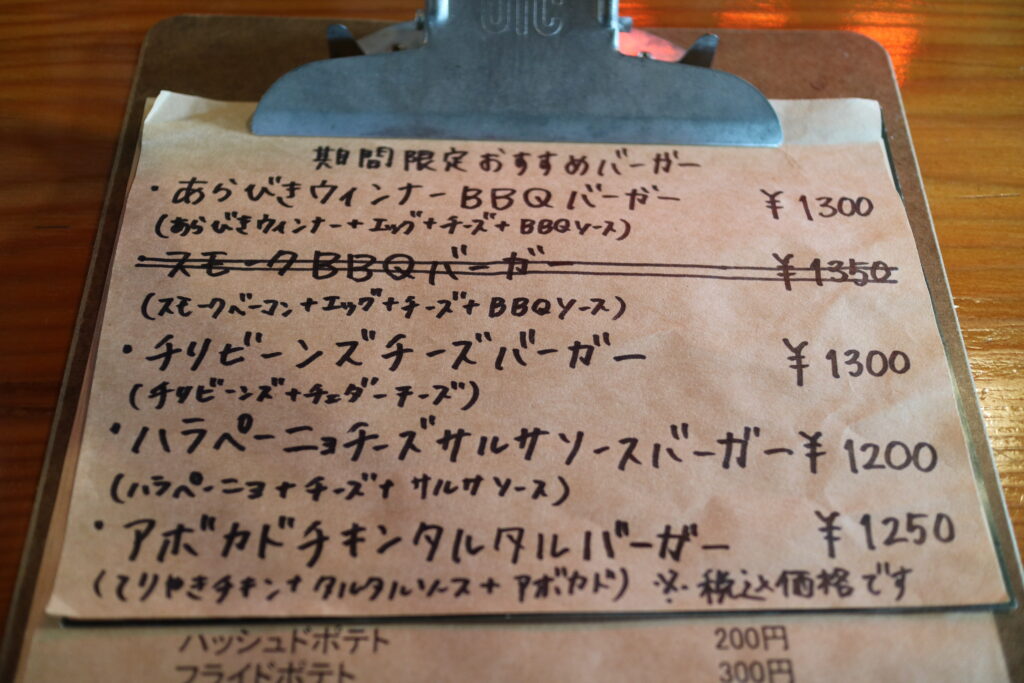 OIC
期間限定おすすめバーガー
・あらびきウィンナーBBQバーガー ¥1300
(あらびきウィンナー+エッグ+チーズ+BBQソース)
・スモークBBQバーガー ¥1350
(スモークベーコン+エッグ+チーズ+BBQソース)
・チリビーンズチーズバーガー ¥1300
(チリビーンズ+チェダーチーズ)
・ハラペーニョチーズサルサソースバーガー ¥1200
(ハラペーニョ+チーズ+サルサソース)
・アボカドチキンタルタルバーガー ¥1250
(てりやきチキン+タルタルソース+アボカド) ※税込価格です
ハッシュドポテト 200円
フライドポテト 300円